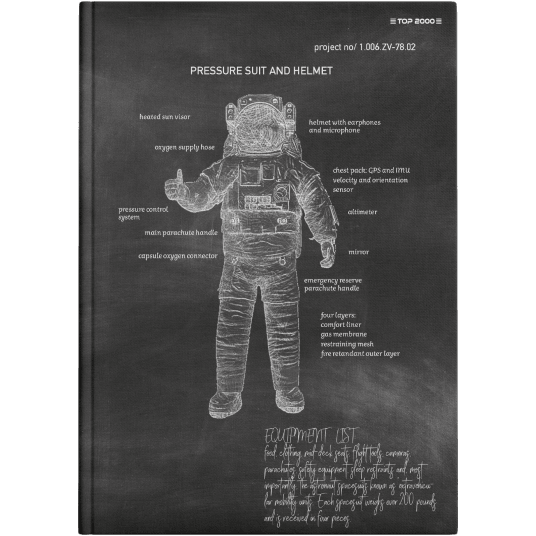 TOP 2000
project no/ 1.006.ZV-78.02
PRESSURE SUIT AND HELMET
heated sun visor
helmet with earphones
and microphone
oxygen supply hose
chest pack: GPS and IMU
velocity and orientation
sensor
pressure control
system
altimeter
main parachute handle
capsule oxygen connector
mirror
emergency reserve
parachute handle
four layers:
comfort liner
gas membrane
restraining mesh
fire retardant outer layer
EQUIPMENT LIST
food, clothing, mid-deck seats, flight tools, cameras,
parachutes, safety equipment, sleep restraints and, most
importantly, the astronaut spacesuits known as extravehicu-
lar mobility units. Each spacesuit weighs over 200 pounds
and is received in four pieces